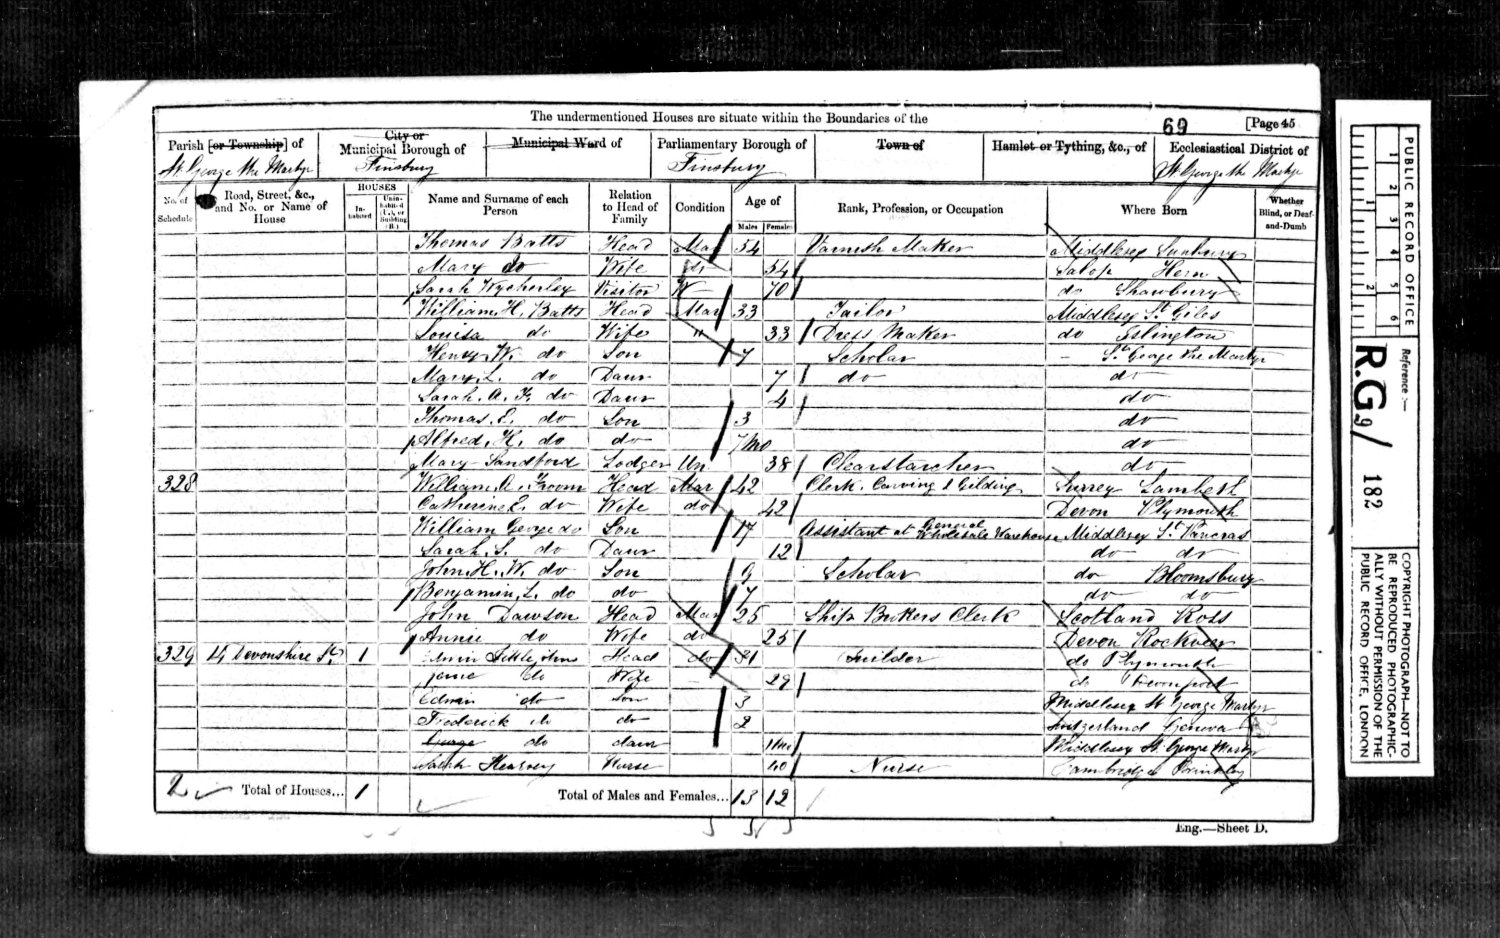 The undermentioned Houses are situate within the Boundaries of the
69 [Page 45
Parish [or Township] of City or Municipal Borough of Municipal Ward of Parliamentary Borough of Town of Hamlet or Tything, &c., of Ecclesiastical District of
St. George the Martyr Finsbury Finsbury St George the Martyr
No. of Schedule Road, Street, &c., and No. or Name of House HOUSES Inhabited Uninhabited (U.), or Building (B.) Name and Surname of each Person Relation to Head of Family Condition Age of Males Females Rank, Profession, or Occupation Where Born Whether Blind, or Deaf-and-Dumb
Thomas Batts Head Mar 54 Varnish Maker Middlesex Sunbury
Mary do Wife 54 Salop
Sarah Wycherley Visitor W 70 do Shawbury
William H. Batts Head Mar 33 Tailor Middlesex St Giles
Louisa do Wife " 33 Dress Maker do Islington
Henry W. do Son 7 Scholar - St George the Martyr
Mary L. do Daur 7 do do
Sarah A. do Daur 4 do
Thomas E. do Son 3 do
Alfred H. do do 7 Mo do
Mary Sandford Lodger Un 38 Clearstarcher do
328 William A. Froom Head Mar 42 Clerk. Carving & Gilding Surrey Lambeth
Catherine E. do Wife do 42 Devon Plymouth
William George do Son 17 Assistant at General Wholesale Warehouse Middlesex St Pancras
Sarah S. do Daur 12 do do
John H. W. do Son 9 Scholar do Bloomsbury
Benjamin L. do do 7 do do
John Dawson Head Mar 25 Ship Brokers Clerk Scotland Ross
Annie do Wife do 25 Devon
329 14 Devonshire St 1 Edwin Littlejohns Head do 31 Builder do Plymouth
Jane do Wife 29 do Devonport
Edwin do Son 3 Middlesex St George Martyr
Frederick do do 2 Switzerland Geneva
do daur Middlesex St George Martyr
Sarah Nurse 40 Nurse Cambridge Brinkley
2 Total of Houses... 1 Total of Males and Females... 13 12
Eng.—Sheet D.
PUBLIC RECORD OFFICE
1 2 3 4 5 6
1 2
Reference :—
R.G. 9/ 182
COPYRIGHT PHOTOGRAPH—NOT TO
BE REPRODUCED PHOTOGRAPHIC-
ALLY WITHOUT PERMISSION OF THE
PUBLIC RECORD OFFICE, LONDON